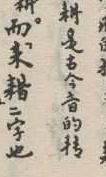 耕是古今音的轉
耕。而「耒耤二字也